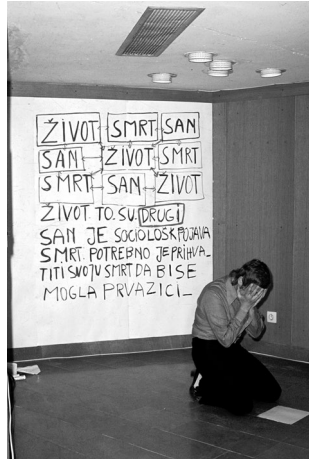 ŽIVOT SMRT SAN
SAN ŽIVOT SMRT
SMRT SAN ŽIVOT
ŽIVOT. TO. SU. DRUGI
SAN JE SOCIOLOŠK POJAVA
SMRT. POTREBNO JE PRIHVA_
TITI SVOJU SMRT DA BI SE
MOGLA PRVAZICI_